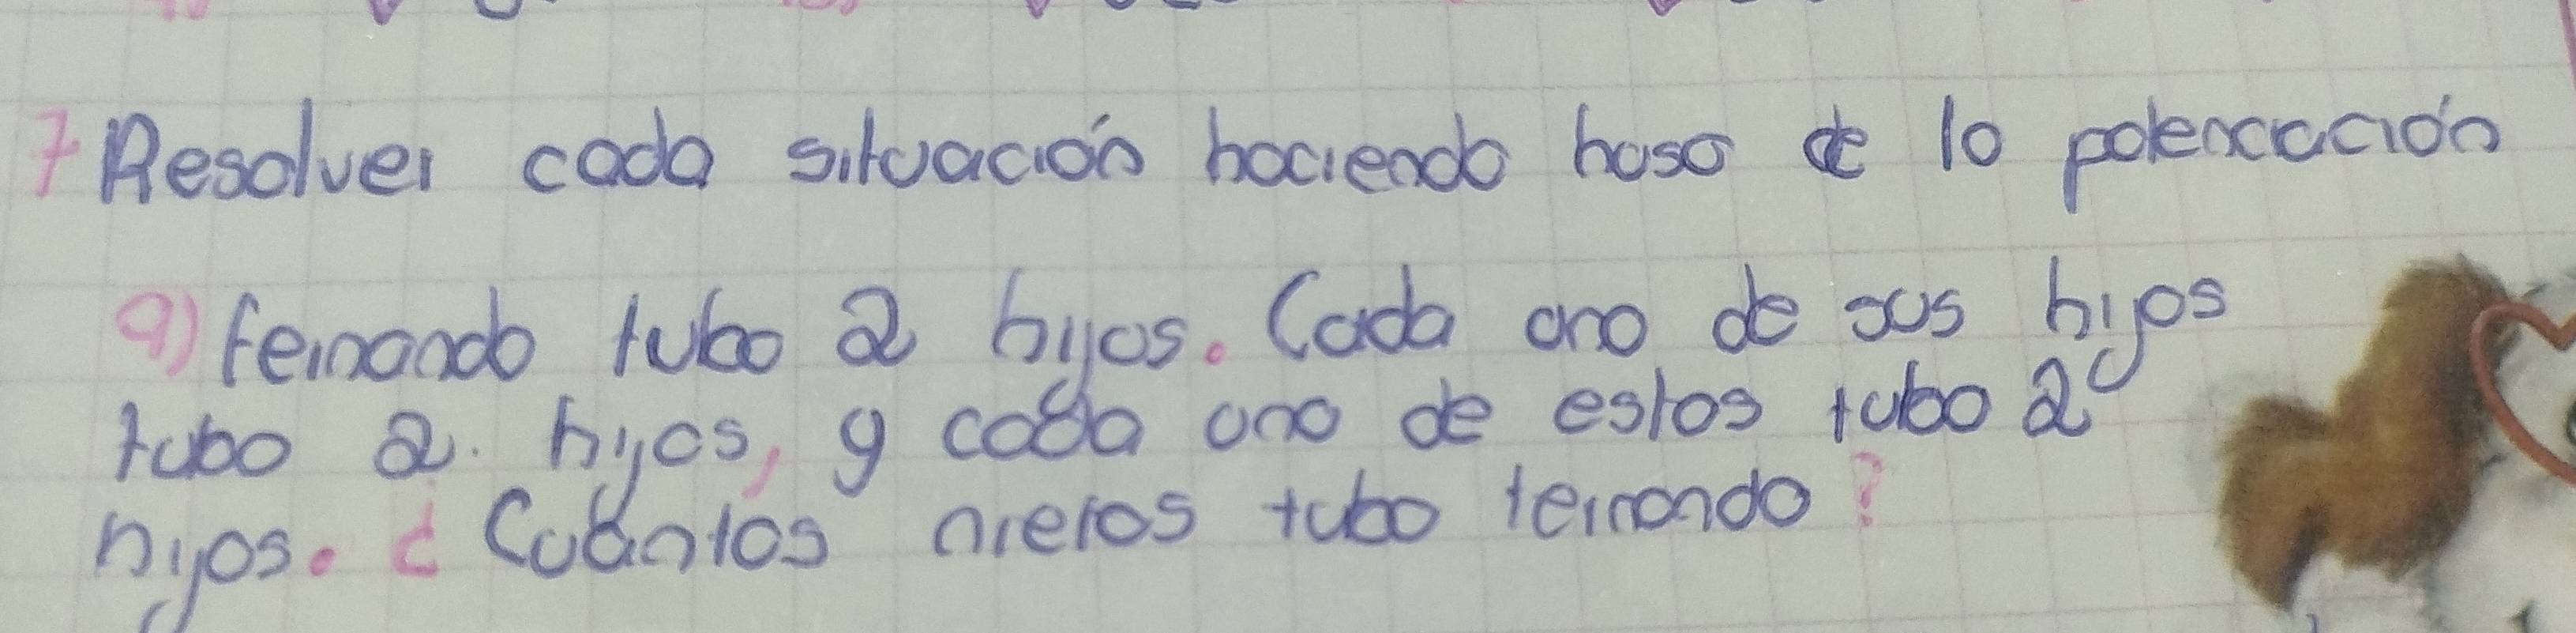 7 Resolver cada situación haciendo huso de la potenciación
a) fernando tubo 2 hijos. Cada uno de sus hijos
tubo 2. hijos, y cada uno de estos tubo 2
hijos. ¿ Cuántos nietos tubo fernando?